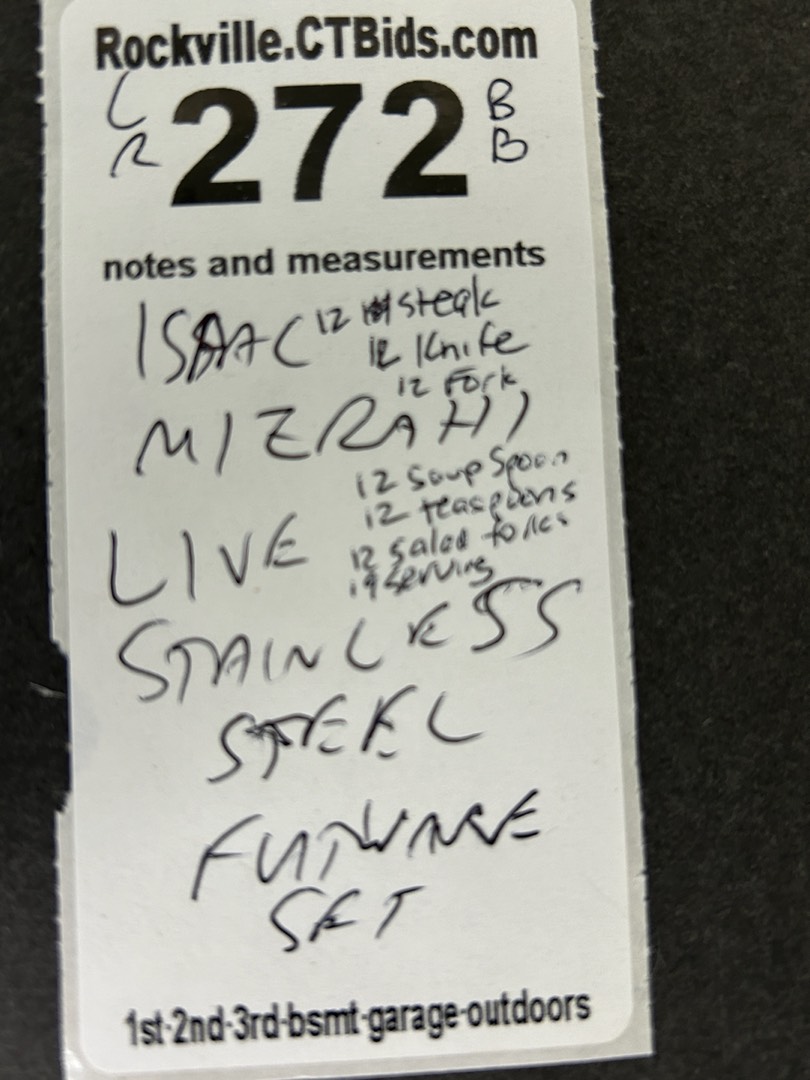 Rockville.CTBids.com
L 272 B
R B
notes and measurements
ISAAC 12 steak
12 Knife
12 Fork
MIZRAHI
12 Soup Spoon
12 teaspoons
LIVE
12 salad forks
serving
STAINLESS
STEEL
SET
1st-2nd-3rd-bsmt-garage-outdoors